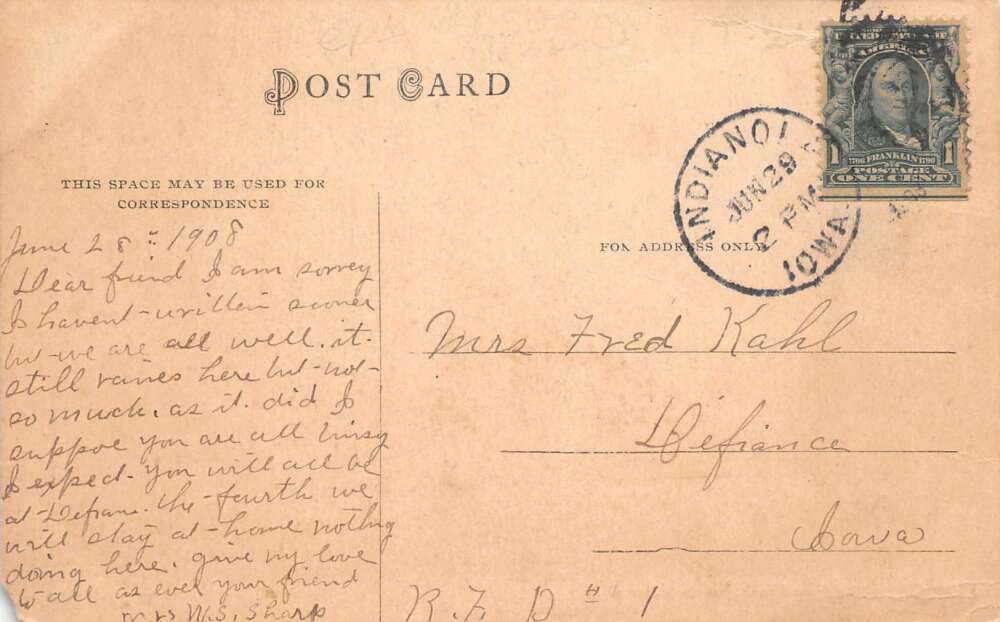 POST CARD
UNITED STATES OF
AMERICA
1 1
1706 FRANKLIN 1790
POSTAGE
ONE CENT
INDIANOLA
JUN 29
2 PM
IOWA
THIS SPACE MAY BE USED FOR
CORRESPONDENCE
FOR ADDRESS ONLY
June 28th 1908
Dear friend I am sorrey
I havent-written sooner
but-we are all well. it-
still raines here but-not-
so much. as it did I
suppoe you are all busy
I expect-you will all be
at-Defianc. the-fourth we
will stay at-home nothng
doing here. give my love
to all as ever your friend
Mrs W.S. Sharp
Mrs Fred Kahl
Defiance
Iowa
R.F D # 1